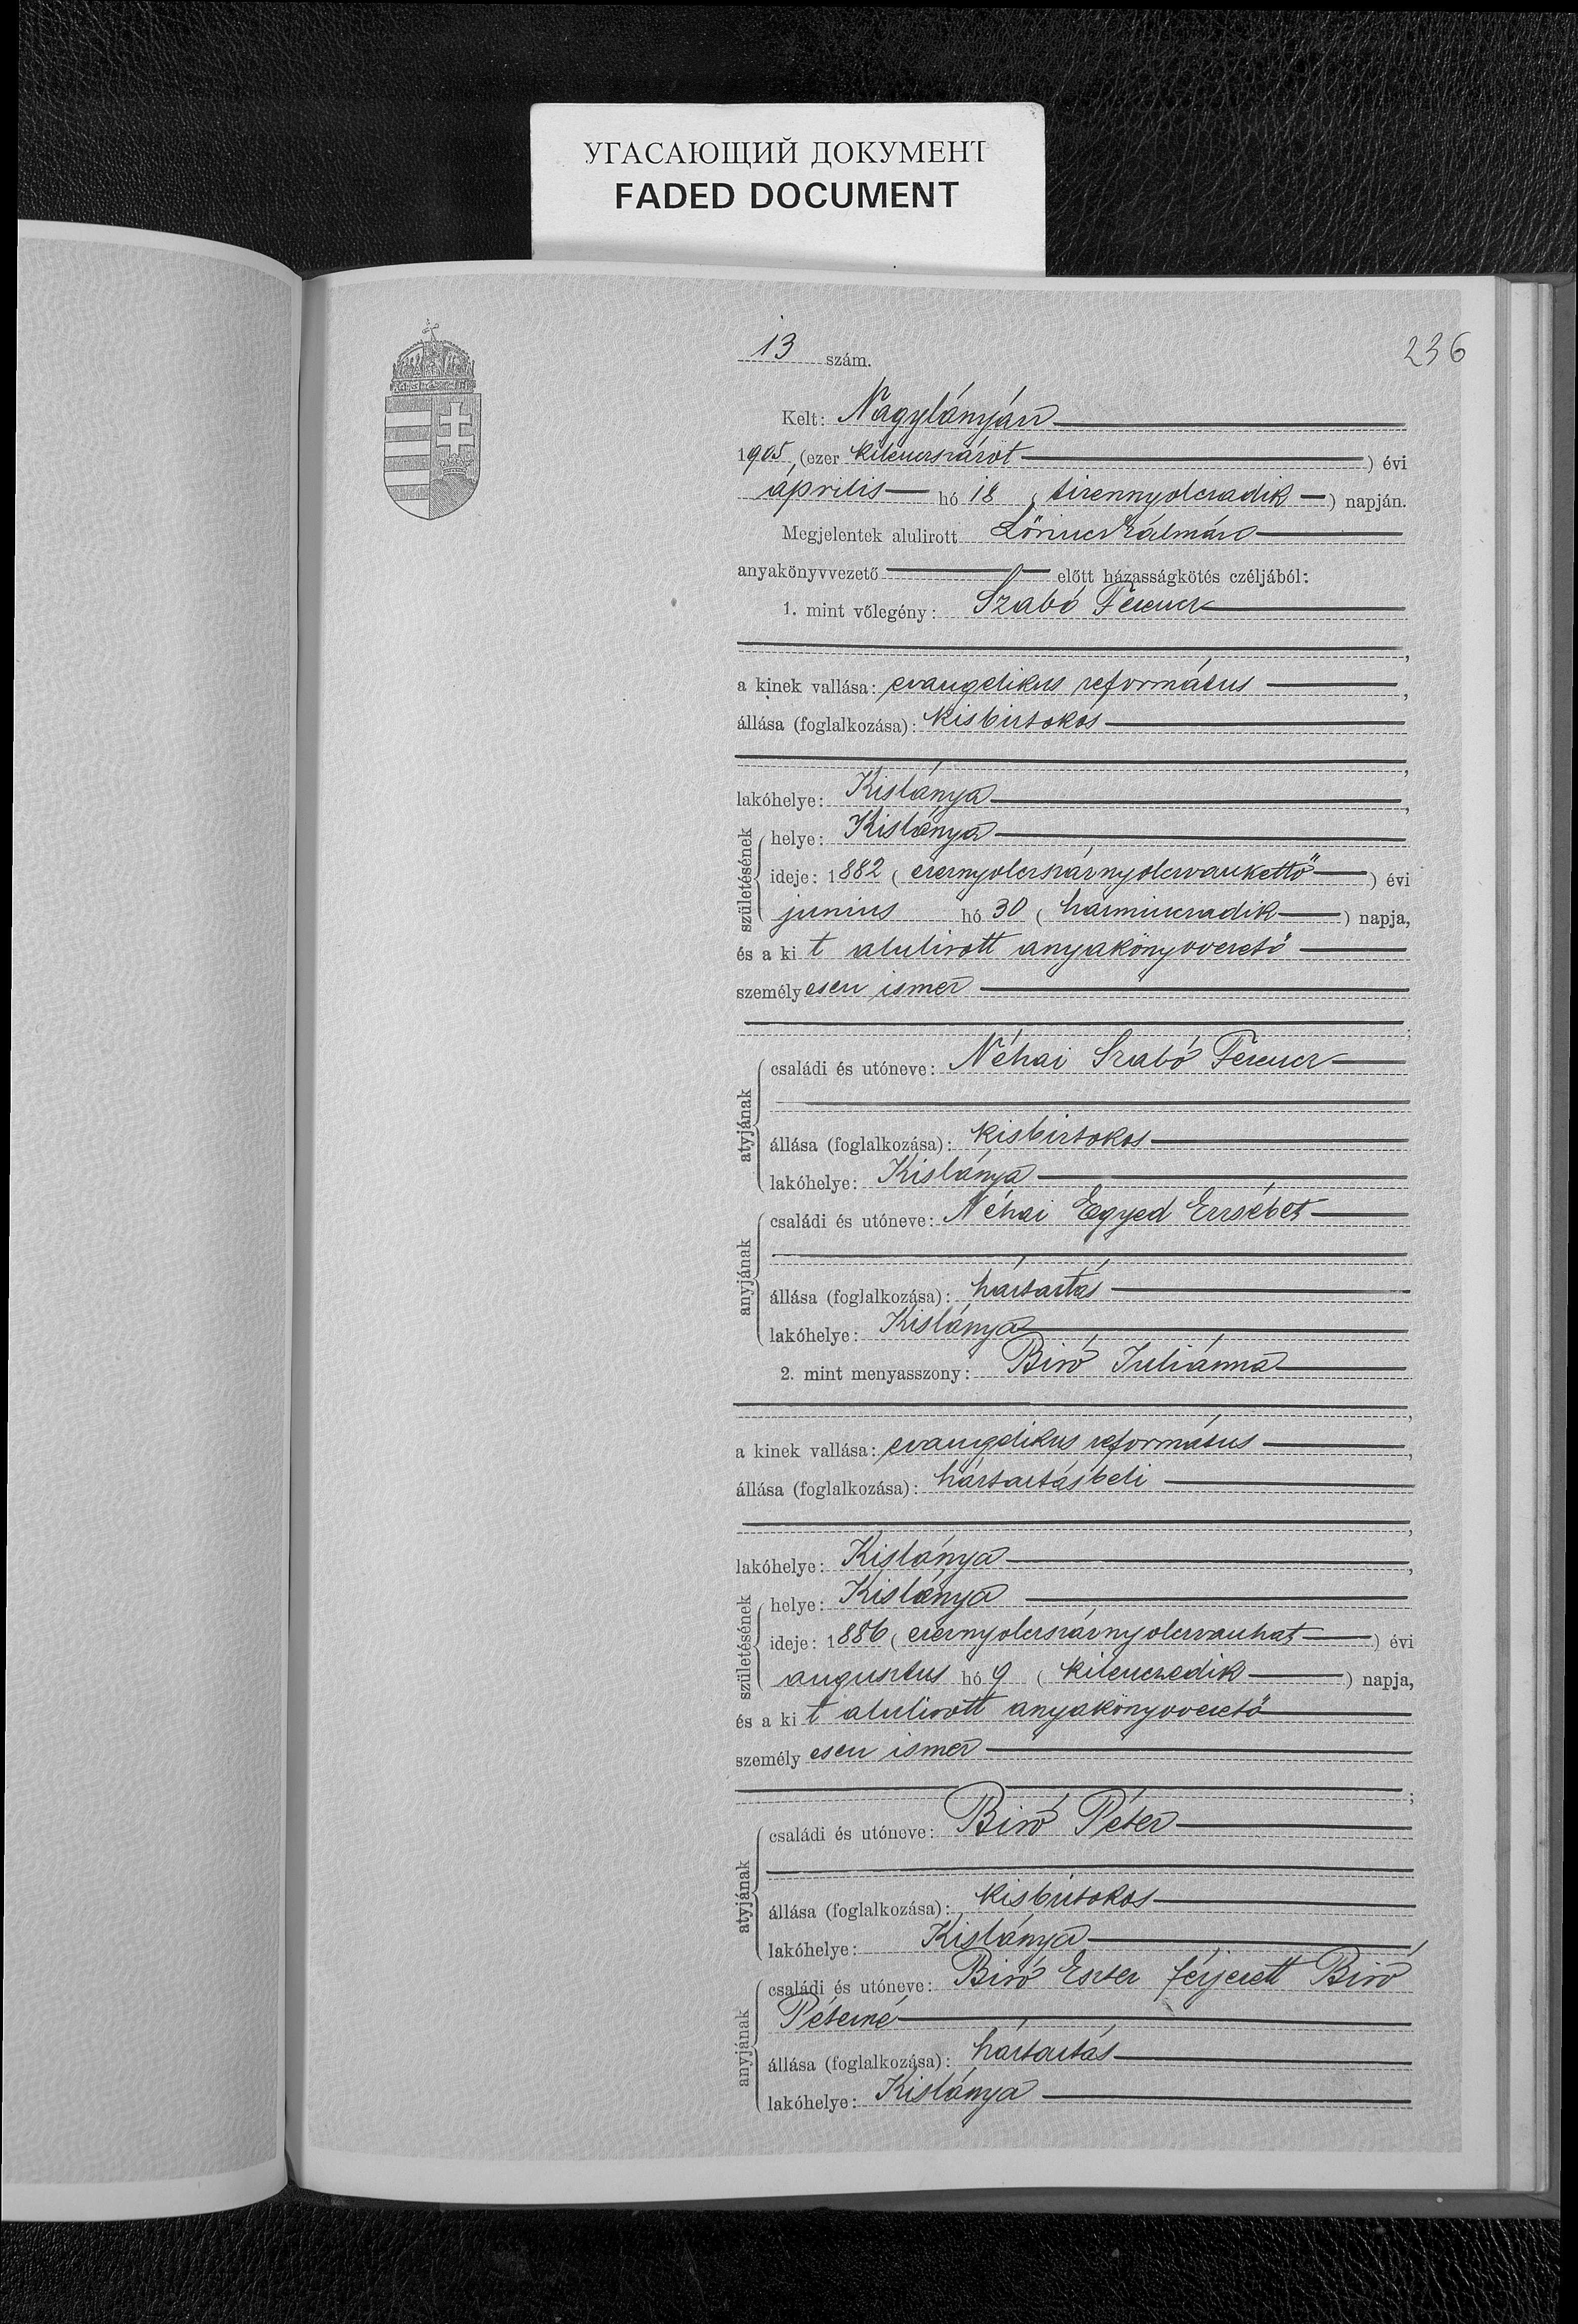 УГАСАЮЩИЙ ДОКУМЕНТ
FADED DOCUMENT
13 szám.
236
Kelt: Naglónyán
1905, (ezer kilenczszázöt) évi
április hó 18 (tizennyolczadik) napján.
Megjelentek alulirott Lőrincz Kálmán
anyakönyvvezető előtt házasságkötés czéljából:
1. mint vőlegény: Szabó Ferencz
a kinek vallása: evangelikus református,
állása (foglalkozása): kisbirtokos
lakóhelye: Kislónya,
születésének
helye: Kislónya
ideje: 1882 (ezernyolczszáznyolczvankettő) évi
junius hó 30 (harminczadik) napja,
és a kit alulirott anyakönyvvezető
személyesen ismer
atyjának
családi és utóneve: Néhai Szabó Ferencz
állása (foglalkozása): kisbirtokos
lakóhelye: Kislónya
anyjának
családi és utóneve: Néhai Egyed Erzsébet
állása (foglalkozása): háztartás
lakóhelye: Kislónya
2. mint menyasszony: Biró Juliánna
a kinek vallása: evangelikus református,
állása (foglalkozása): háztartásbeli
lakóhelye: Kislónya,
születésének
helye: Kislónya
ideje: 1886 (ezernyolczszáznyolczvanhat) évi
augusztus hó 9 (kilenczedik) napja,
és a kit alulirott anyakönyvvezető
személyesen ismer
atyjának
családi és utóneve: Biró Péter
állása (foglalkozása): kisbirtokos
lakóhelye: Kislónya
anyjának
családi és utóneve: Biró Eszter férjezett Biró
Péterné
állása (foglalkozása): háztartás
lakóhelye: Kislónya